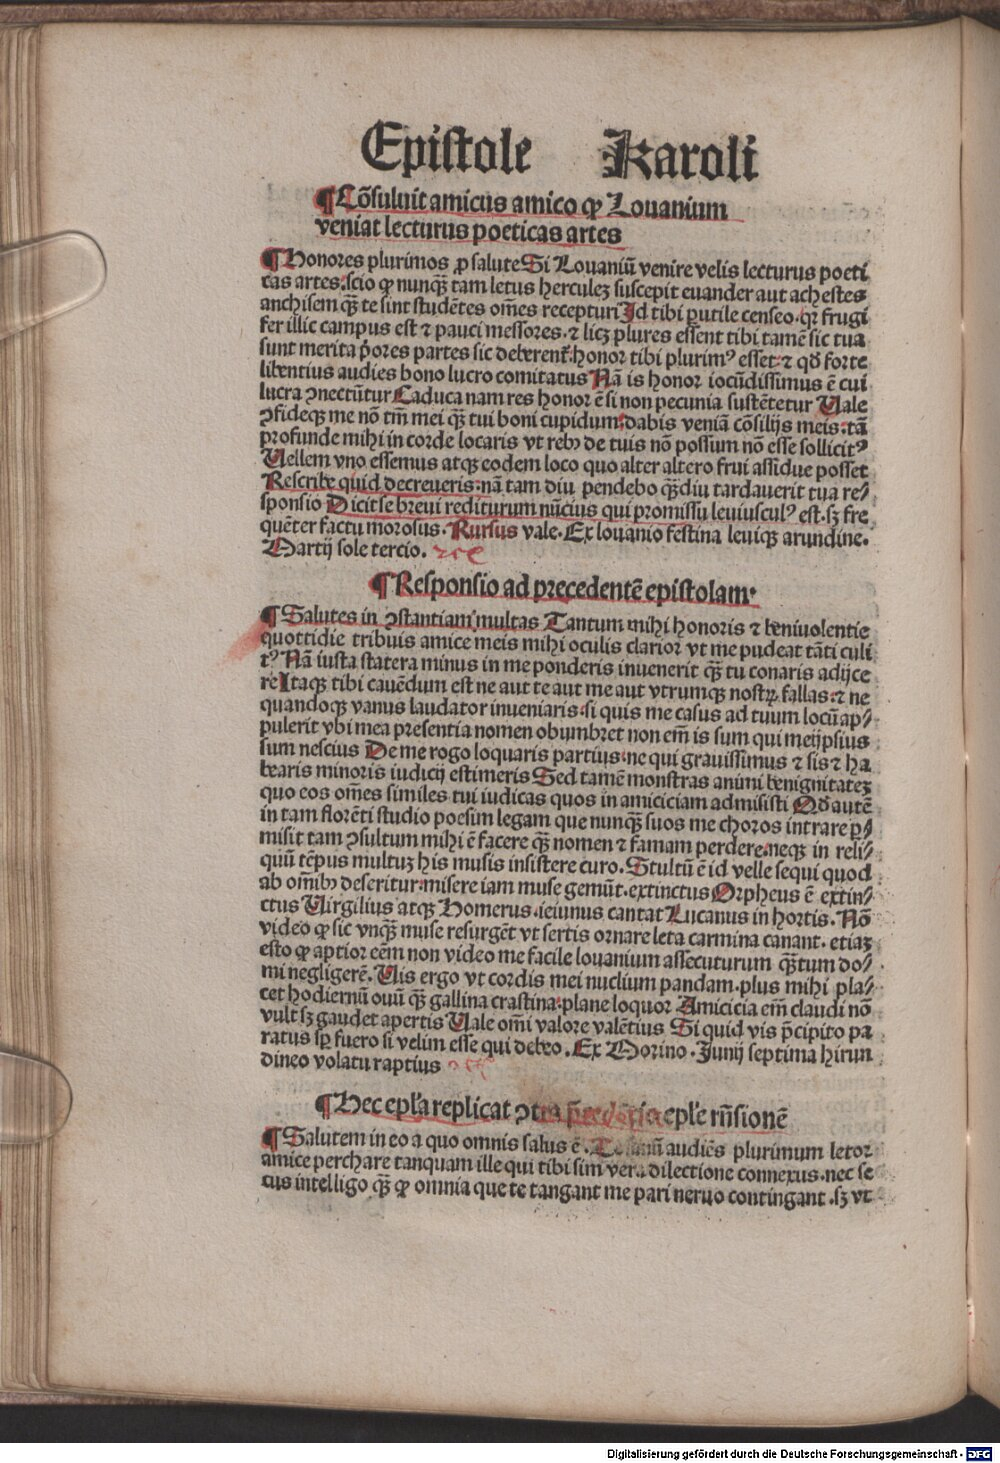 Epistole Karoli
¶ Cōsuluit amicus amico ꝙ Louanium
veniat lecturus poeticas artes
¶ Honores plurimos ꝓ salute Si Louaniū venire velis lecturus poeti
cas artes: scio ꝙ nunqᷓ tam letus herculeꝫ suscepit euander aut achestes
anchisem qᷓ te sint studētes om̄es recepturi Id tibi ꝑutile censeo. qꝛ frugi
fer illic campus est ⁊ pauci messores. ⁊ licꝫ plures essent tibi tamē sic tua
sunt merita p̄ores partes sic deberent̄: honor tibi plurimꝰ esset: ⁊ qd̄ forte
libentius audies bono lucro comitatus Nā is honor iocūdissimus ē cui
lucra ꝯnectūtur Caduca nam res honor ē si non pecunia sustētetur Vale
ꝯfideqꝫ me nō tm̄ mei qᷓ tui boni cupidum: dabis veniā cōsilijs meis. tā
profunde mihi in corde locaris vt rebꝰ de tuis nō possum nō esse sollicitꝰ
Vellem vno essemus atqꝫ eodem loco quo alter altero frui assidue posset
Rescribe quid decreueris: nā tam diu pendebo qᷓdiu tardauerit tua re⸗
sponsio Dicit se breui rediturum nūcius qui promissu leuiusculꝰ est. sꝫ fre
quēter factu morosus. Rursus vale. Ex louanio festina leuiqꝫ arundine.
Martij sole tercio.
¶ Responsio ad precedentē epistolam.
¶ Salutes in ꝯstantiam multas Tantum mihi honoris ⁊ beniuolentie
quottidie tribuis amice meis mihi oculis clarior vt me pudeat tāti culi
tꝰ Nā iusta statera minus in me ponderis inuenerit qᷓ tu conaris adijce
re Itaqꝫ tibi cauēdum est ne aut te aut me aut vtrumqꝫ nostrꝝ fallas: ⁊ ne
quandoqꝫ vanus laudator inueniaris: si quis me casus ad tuum locū ap⸗
pulerit vbi mea presentia nomen obumbret non em̄ is sum qui meijpsius
sum nescius De me rogo loquaris partius: ne qui grauissimus ⁊ sis ⁊ ha
bearis minoris iudicij estimeris Sed tamē monstras animi benignitateꝫ
quo eos om̄es similes tui iudicas quos in amiciciam admisisti Qd̄ autē
in tam florēti studio poesim legam que nunqᷓ suos me choros intrare ꝑ⸗
misit tam ꝯsultum mihi ē facere qᷓ nomen ⁊ famam perdere: neqꝫ in reli⸗
quū tēpus multuꝫ his musis insistere curo. Stultū ē id velle sequi quod
ab om̄ibꝰ deseritur: misere iam muse gemūt. extinctus Orpheus ē extin⸗
ctus Virgilius atqꝫ Homerus. ieiunus cantat Lucanus in hortis. Nō
video ꝙ sic vnqᷓ muse resurgēt vt sertis ornare leta carmina canant. etiaꝫ
esto ꝙ aptior eēm non video me facile louanium assecuturum qᷓtum do⸗
mi negligerē. Vis ergo vt cordis mei nuclium pandam. plus mihi pla⸗
cet hodiernū ouū qᷓ gallina crastina. plane loquor Amicicia em̄ claudi nō
vult sꝫ gaudet apertis Vale om̄i valore valētius Si quid vis p̄cipito pa
ratus sꝑ fuero si velim esse qui debeo. Ex Morino. Junij septima hirun
dineo volatu raptius
¶ Hec epl̄a replicat ꝯtra p̄cedētis epl̄e rn̄sionē
¶ Salutem in eo a quo omnis salus ē. audiēs plurimum letor
amice perchare tanquam ille qui tibi sim vera dilectione connexus. nec se
cus intelligo qᷓ ꝙ omnia que te tangant me pari neruo contingant. sꝫ vt
Digitalisierung gefördert durch die Deutsche Forschungsgemeinschaft - DFG